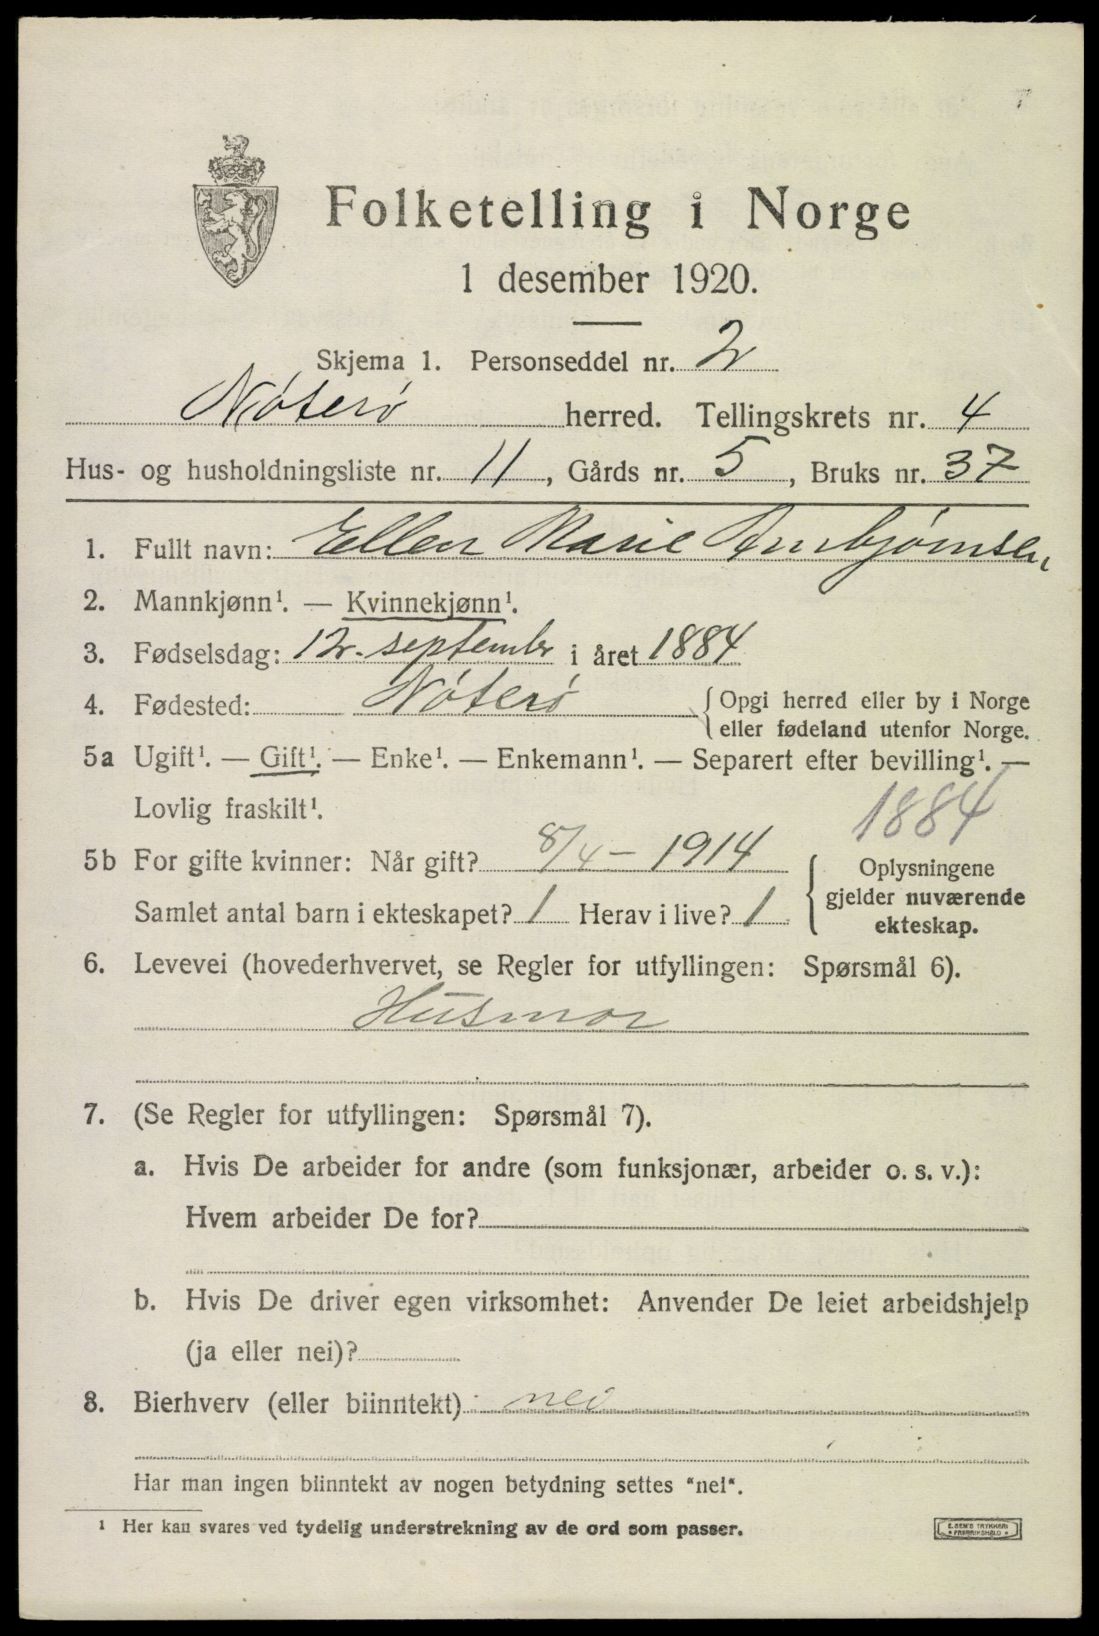 Folketelling i Norge
1 desember 1920.
Skjema 1. Personseddel nr. 2
Nøterø herred. Tellingskrets nr. 4
Hus- og husholdningsliste nr. 11, Gårds nr. 5, Bruks nr. 37
1. Fullt navn: Ellen Marie Arnbjørnsen
2. Mannkjønn¹. — Kvinnekjønn¹.
3. Fødselsdag: 12. september i året 1884
4. Fødested: Nøterø { Opgi herred eller by i Norge
eller fødeland utenfor Norge.
5a Ugift¹. — Gift¹. — Enke¹. — Enkemann¹. — Separert efter bevilling¹. —
Lovlig fraskilt¹.
1884
5b For gifte kvinner: Når gift? 8/4 - 1914
Samlet antal barn i ekteskapet? 1 Herav i live? 1
Oplysningene
gjelder nuværende
ekteskap.
6. Levevei (hovederhvervet, se Regler for utfyllingen: Spørsmål 6).
Husmor
7. (Se Regler for utfyllingen: Spørsmål 7).
a. Hvis De arbeider for andre (som funksjonær, arbeider o. s. v.):
Hvem arbeider De for?
b. Hvis De driver egen virksomhet: Anvender De leiet arbeidshjelp
(ja eller nei)?
8. Bierhverv (eller biinntekt) nei
Har man ingen biinntekt av nogen betydning settes "nei".
¹ Her kan svares ved tydelig understrekning av de ord som passer.